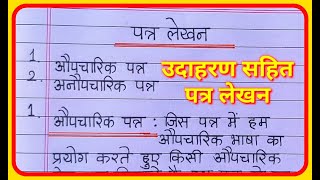 पत्र लेखन
1. औपचारिक पत्र
2. अनौपचारिक पत्र
उदाहरण सहित
पत्र लेखन
1. औपचारिक पत्र : जिस पत्र में हम
औपचारिक भाषा का
प्रयोग करते हुए किसी औपचारिक